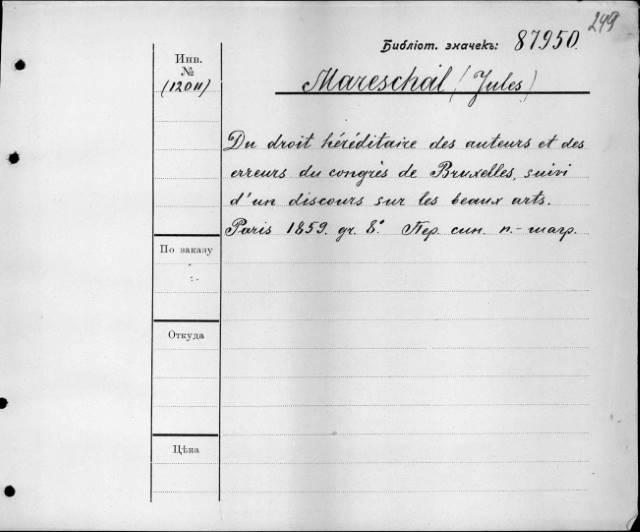 249
Библіот. значекъ: 87950.
Инв.
№
(12011)
Mareschal (Jules)
Du droit héréditaire des auteurs et des
erreurs du congrès de Bruxelles, suivi
d'un discours sur les beaux arts.
Paris 1859. gr. 8°. Пер. син. п.-шагр.
По заказу
Откуда
Цѣна